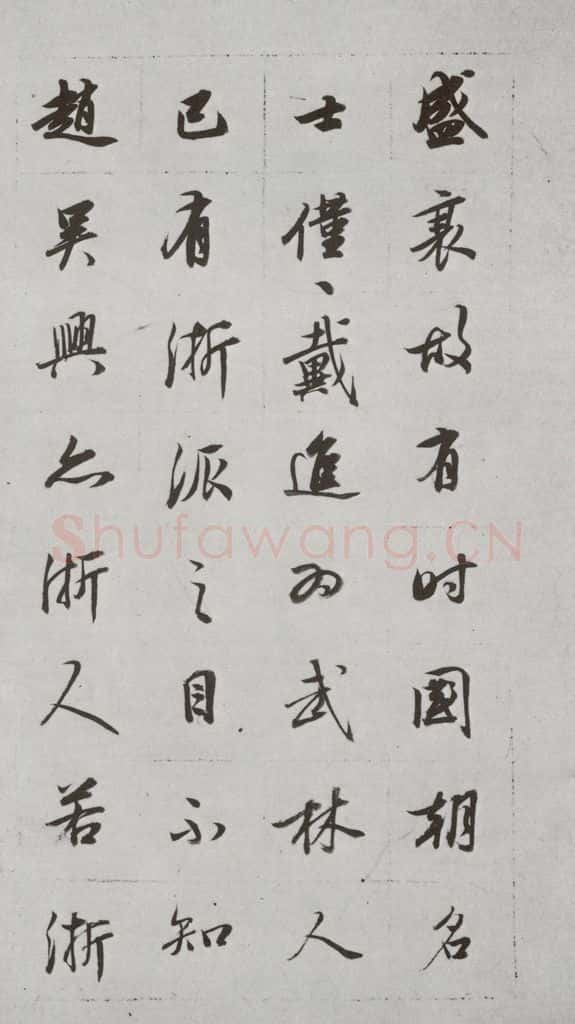 盛衰故有时國朝名
士僅〻戴進为武林人
已有浙派之目不知
趙吴興亦浙人若浙
Shufawang.CN